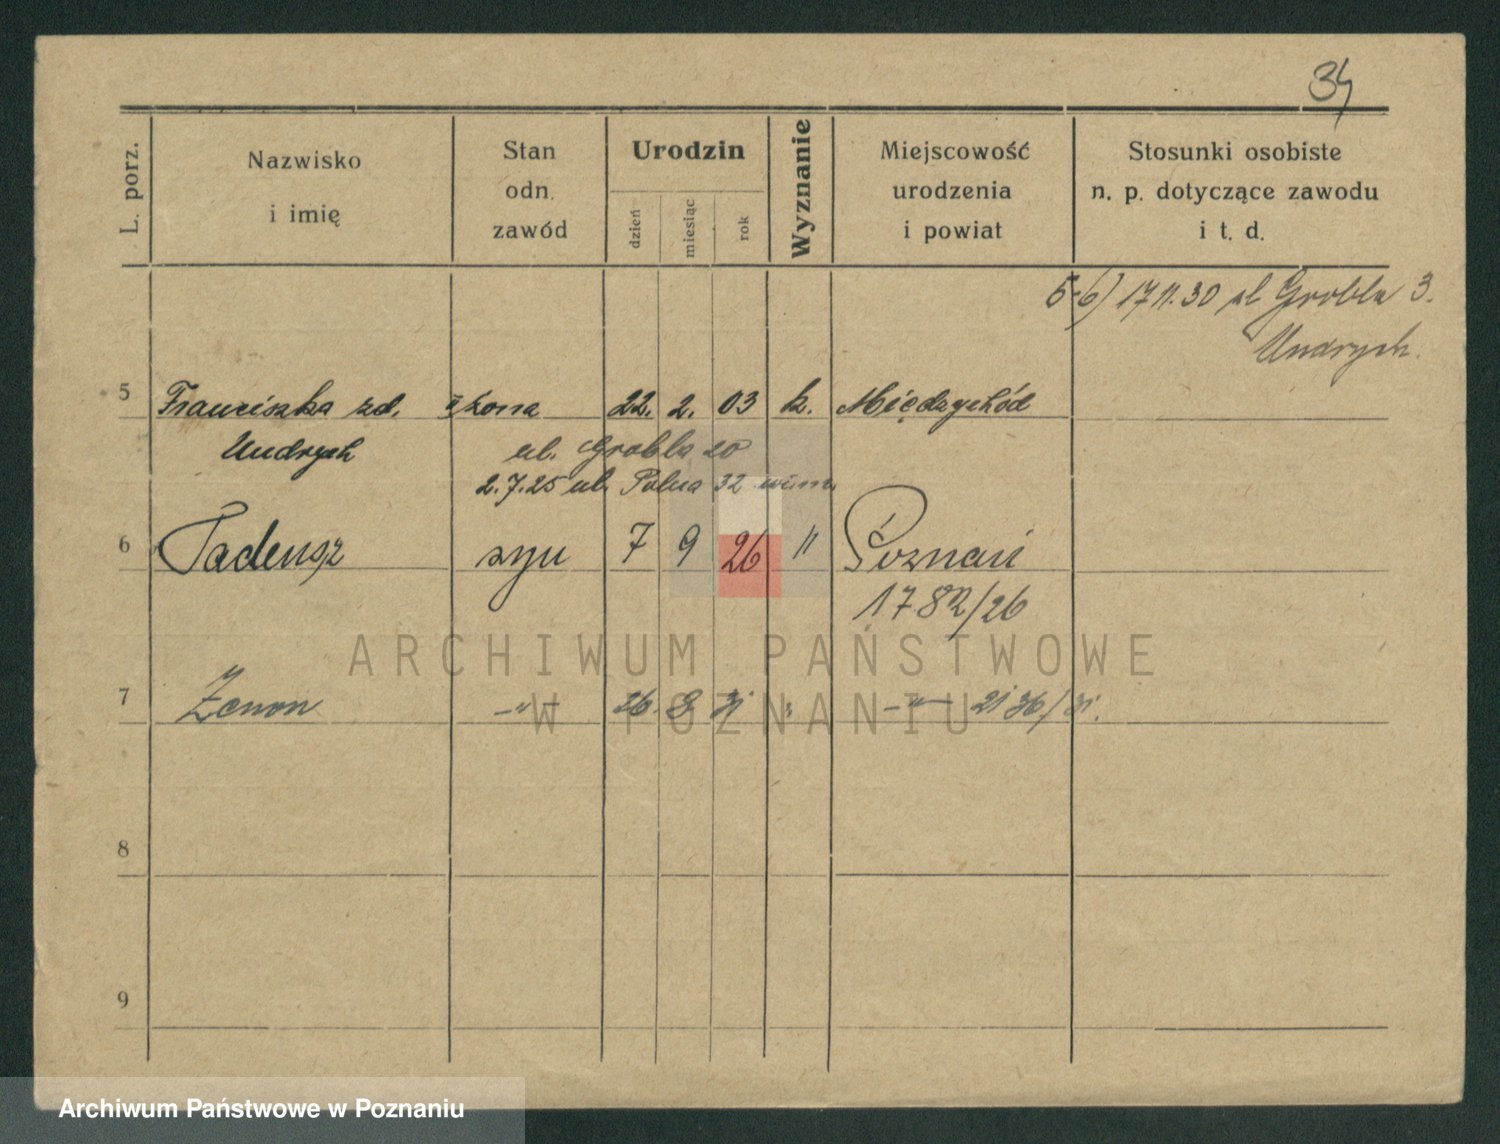 34
L. porz.
Nazwisko
i imię
Stan
odn.
zawód
Urodzin
dzień
miesiąc
rok
Wyznanie
Miejscowość
urodzenia
i powiat
Stosunki osobiste
n. p. dotyczące zawodu
i t. d.
5-6) 17.11.30 ul Grobla 3.
Undrych.
5 Franciszka zd. żona 22. 2. 03 k. Międzychód
Undrych ul. Grobla 20
2.7.25 ul. Polna 32
6 Tadeusz syn 7 9 26 " Poznań
1782/26
7 Zenon -"- 26. 8 31 " -"- 2136/31.
8
9
ARCHIWUM PAŃSTWOWE
W POZNANIU
Archiwum Państwowe w Poznaniu